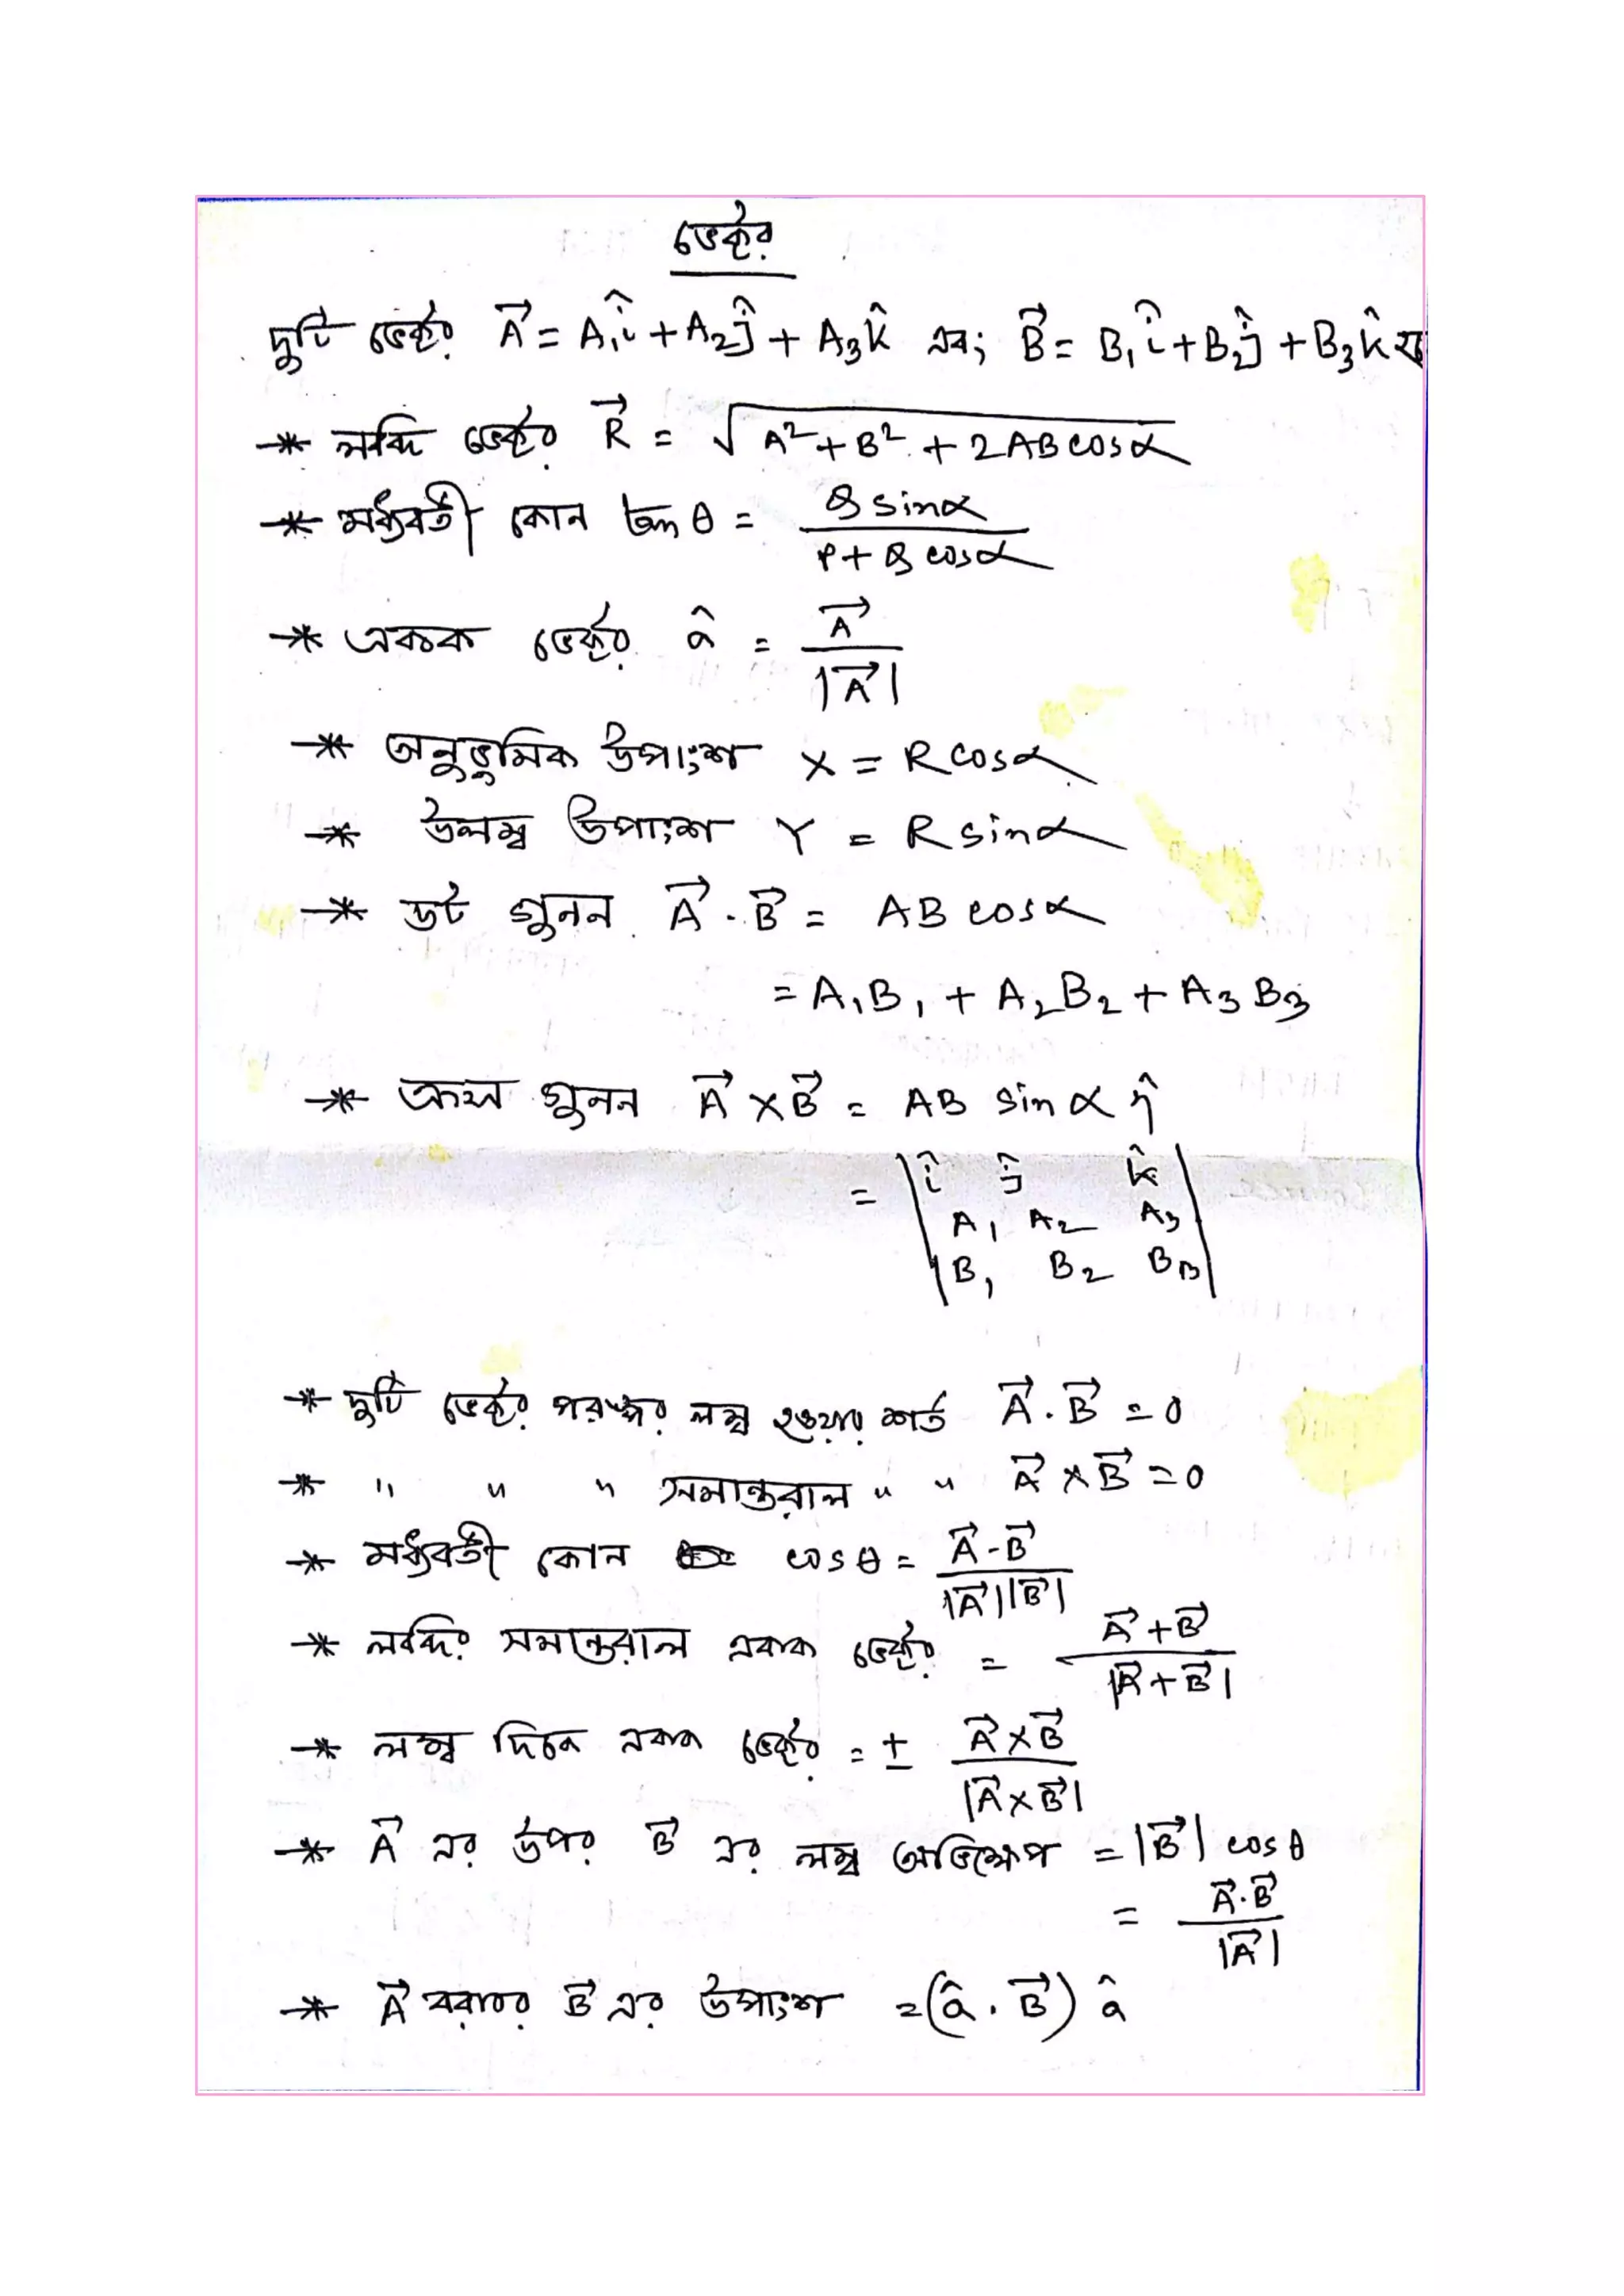 ভেক্টর
দুটি ভেক্টর A⃗ = A₁î + A₂ĵ + A₃k̂ এবং B⃗ = B₁î + B₂ĵ + B₃k̂
* লব্দি ভেক্টর R⃗ = √(A² + B² + 2AB cosα)
* মধ্যবর্তী কোন tanθ = (Q sinα)/(P + Q cosα)
* একক ভেক্টর â = A⃗/|A⃗|
* অনুভুমিক উপাংশ X = R cosα
* উলম্ব উপাংশ Y = R sinα
* ডট গুনন A⃗ . B⃗ = AB cosα
= A₁B₁ + A₂B₂ + A₃B₃
* ক্রস গুনন A⃗ × B⃗ = AB sinα η̂
= | î ĵ k̂ |
| A₁ A₂ A₃ |
| B₁ B₂ B₃ |
* দুটি ভেক্টর পরস্পর লম্ব হওয়ার শর্ত A⃗ . B⃗ = 0
* " " " সমান্তরাল " " A⃗ × B⃗ = 0
* মধ্যবর্তী কোন cosθ = (A⃗ . B⃗)/(|A⃗||B⃗|)
* লব্দির সমান্তরাল একক ভেক্টর = (A⃗ + B⃗)/|A⃗ + B⃗|
* লম্ব দিকে একক ভেক্টর = ± (A⃗ × B⃗)/|A⃗ × B⃗|
* A⃗ এর উপর B⃗ এর লম্ব অভিক্ষেপ = |B⃗| cosθ
= (A⃗ . B⃗)/|A⃗|
* A⃗ বরাবর B⃗ এর উপাংশ = (â . B⃗) â